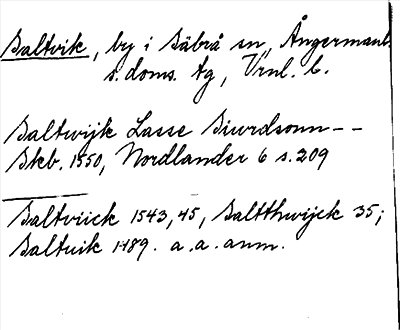 Saltvik, by i Säbrå sn, Ångermanl.
s. doms. tg, Vrnl. l.
Saltwijk Lasse Siurdsonn - -
Skb. 1550, Nordlander 6 s. 209
Saltviick 1543, 45, Saltthwijck 35;
Saltuik 1489. a. a. anm.